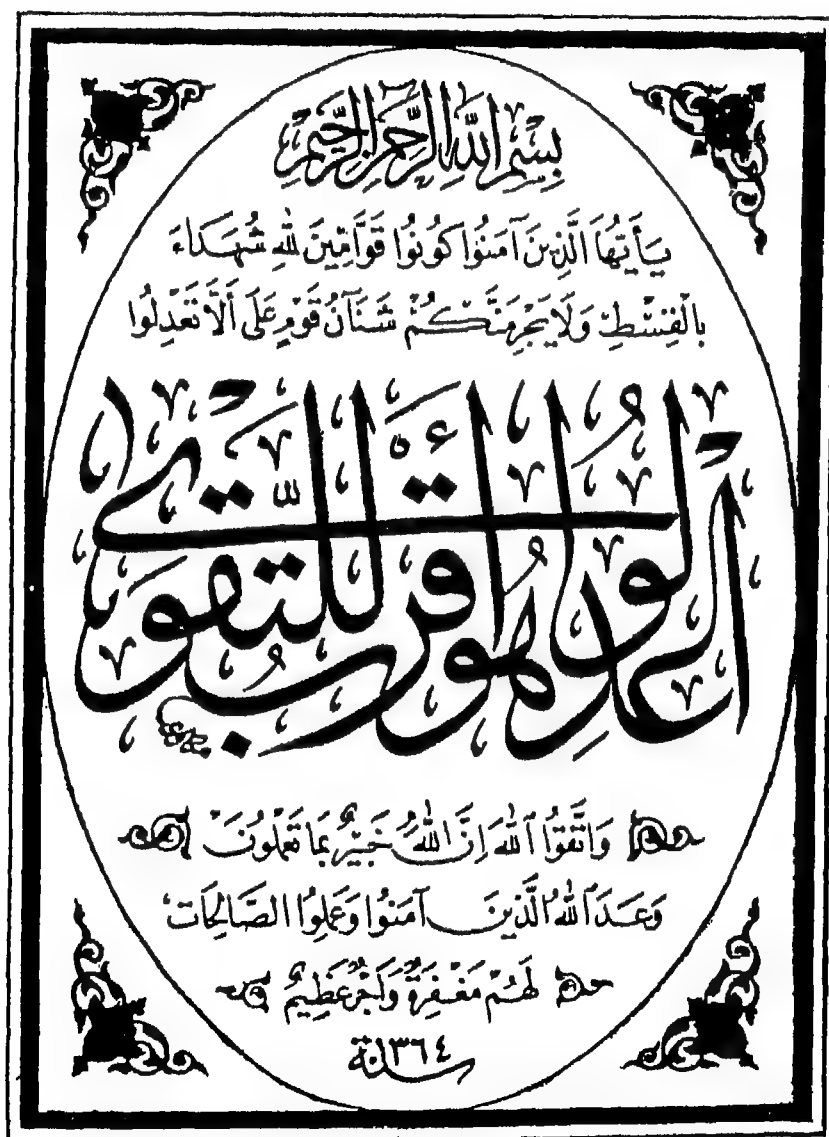 بِسْمِ اللَّهِ الرَّحْمَنِ الرَّحِيمِ
يَـٰأَيُّهَا الَّذِينَ آمَنُوا كُونُوا قَوَّامِينَ لِلَّهِ شُهَدَاءَ
بِالْقِسْطِ وَلَا يَجْرِمَنَّكُمْ شَنَآنُ قَوْمٍ عَلَى أَلَّا تَعْدِلُوا
اعْدِلُوا هُوَ أَقْرَبُ لِلتَّقْوَى
وَاتَّقُوا اللَّهَ إِنَّ اللَّهَ خَبِيرٌ بِمَا تَعْمَلُونَ
وَعَدَ اللَّهُ الَّذِينَ آمَنُوا وَعَمِلُوا الصَّالِحَاتِ
لَهُمْ مَغْفِرَةٌ وَأَجْرٌ عَظِيمٌ
سنة ١٣٦٤